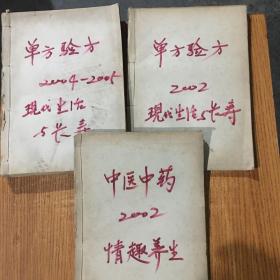 单方验方
2004-2005
现代生活
与长寿
单方验方
2002
现代生活与长寿
中医中药
2002
情趣养生